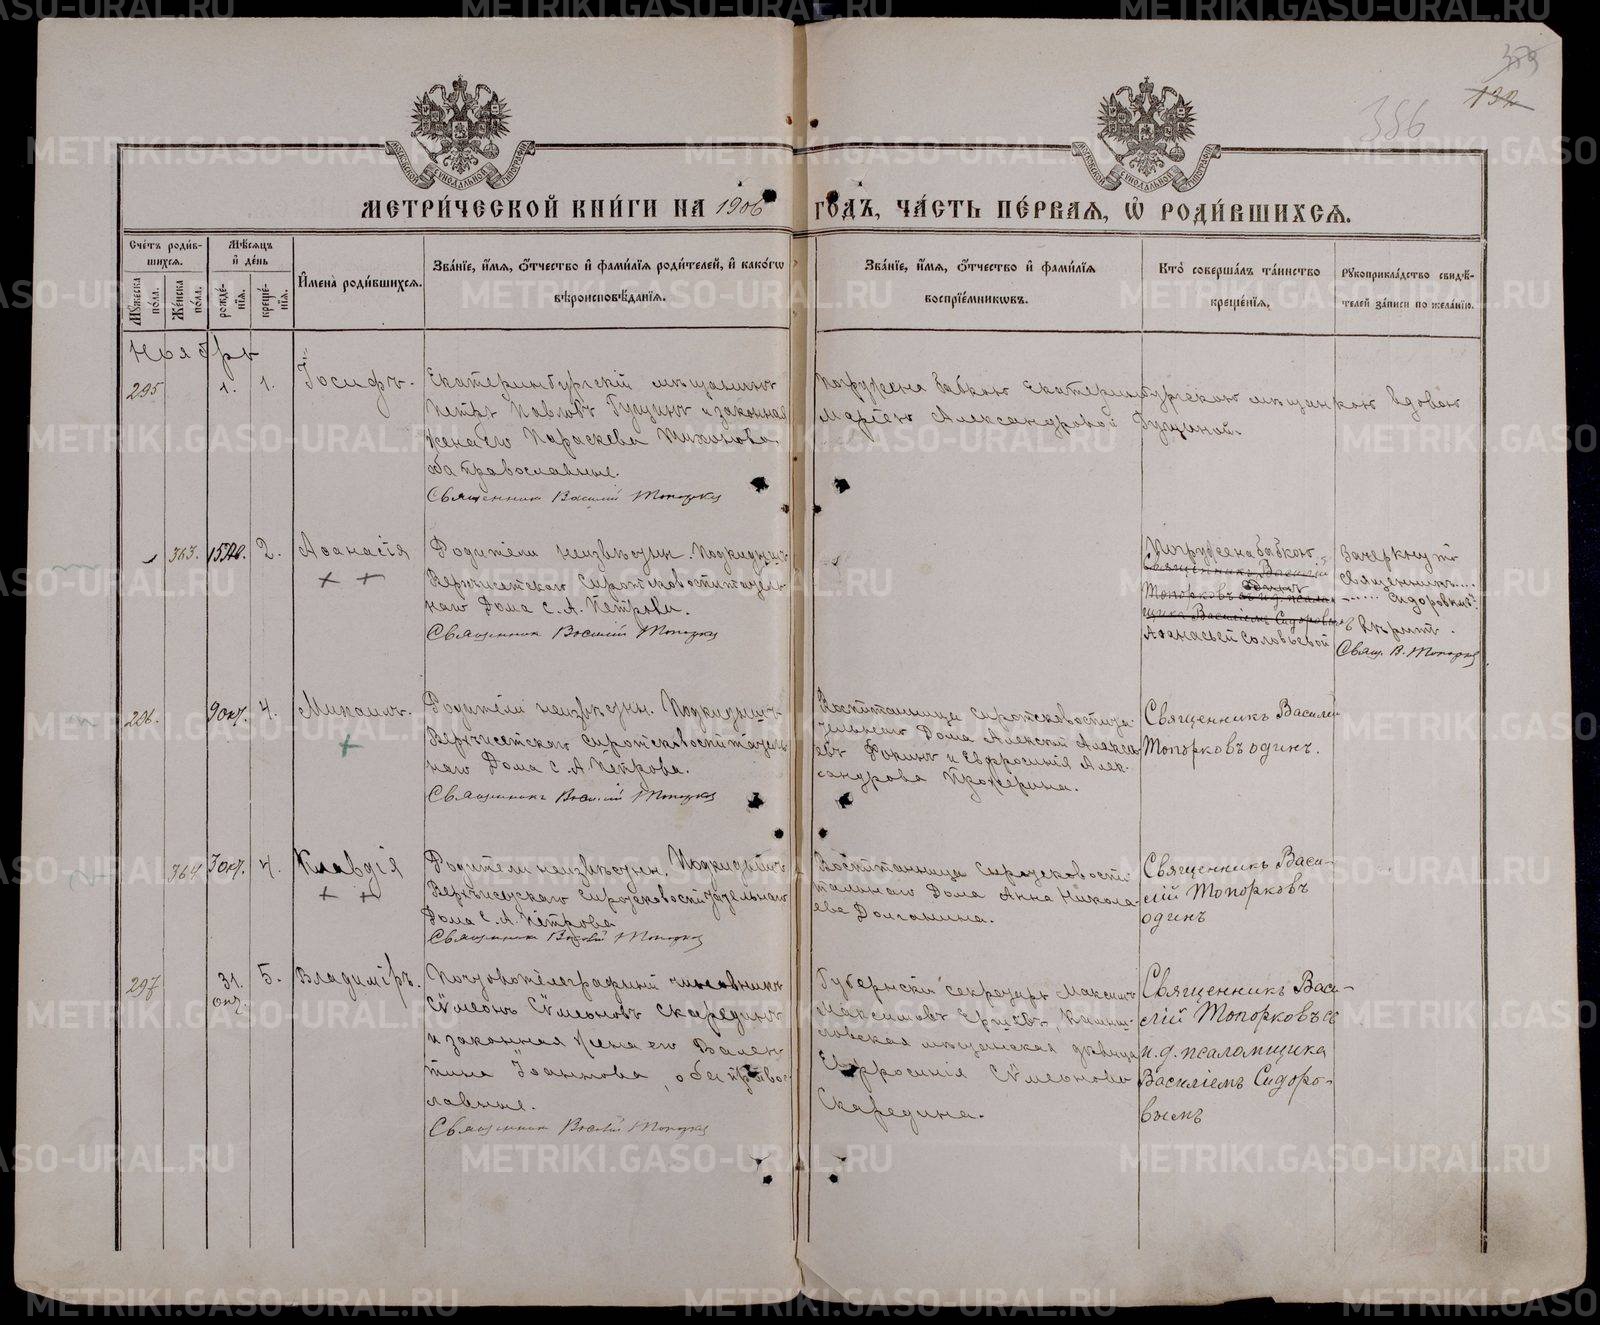 359
132
356
МЕТРИ́ЧЕСКОЙ КНИ́ГИ НА 1906 ГОДЪ, ЧА́СТЬ ПЕ́РВАЯ, Ѡ҆ РОДИ́ВШИХСЯ.
Сче́тъ роди́в-
шихся.
Мѣ́сяцъ
и҆ де́нь
Му́жеска по́ла.
Же́нска по́ла.
рожде́-нїя.
креще́-нїя.
И҆мена̀ роди́вшихся.
Зва́нїе, и҆́мя, ѻ҆́тчество и҆ фами́лїя роди́телей, и҆ како́гѡ
вѣроисповѣ́данїя.
Зва́нїе, и҆́мя, ѻ҆́тчество и҆ фами́лїя
воспрїе́мникѡвъ.
Кто̀ соверша́лъ та́инство
креще́нїя.
Рукоприкла́дство свидѣ́-
телей за́писи по жела́нїю.
Ноябрь
295 1. 1. Іосифъ.
Екатеринбургскій мѣщанинъ
Петръ Павловъ Гущинъ и законная
жена его Параскева Тихонова,
оба православные.
Священникъ Василій Топорковъ
Погружена бабкою Екатеринбургскою мѣщанкою вдовою
Маріею Александровой Гущиной.
363. 2. Аѳанасія
Родители неизвѣстны. Подкидышъ
Верхисетскаго сиротсковоспитатель-
наго Дома С. А. Петрова.
Священникъ Василій Топорковъ
Погружена бабкою
Священникъ Василій
Топорковъ один
щика Василіемъ Сидоровымъ
Аѳанасьей Соловьевой
Зачеркнутое
Священникъ....
...... Сидоровымъ
вѣрить.
Свящ. В. Топорковъ
296. 9 окт. 4. Михаилъ.
Родители неизвѣстны. Подкидышъ
Верхисетскаго сиротсковоспитатель-
наго Дома С. А. Петрова.
Священникъ Василій Топорковъ
Воспитанницы сиротсковоспита-
тельнаго Дома Алексій Алексѣ-
евъ Фокинъ и Евфросинія Алек-
сандрова
Священникъ Василій
Топорковъ одинъ.
364 3 окт. 4. Клавдія
Родители неизвѣстны. Подкидышъ
Верхисетскаго сиротсковоспитательнаго
Дома С. А. Петрова
Священникъ Василій Топорковъ
Воспитанница Сиротсковоспи-
тательнаго Дома Анна Никола-
ева Долганина.
Священникъ Васи-
лій Топорковъ
одинъ
297 31. окт. 5. Владиміръ.
Почтовотелеграфный чиновникъ
Сѵмеонъ Сѵмеоновъ Скарединъ
и законная жена его Вален-
тина Іоаннова, оба правос-
лавные.
Священникъ Василій Топорковъ
Губернскій секретарь Максимъ
Максимовъ Ершовъ, Камыш-
ловская мѣщанская дѣвица
Евфросинія Сѵмеонова
Скаредина.
Священникъ Васи-
лій Топорковъ съ
и.д. псаломщика
Василіемъ Сидоро-
вымъ